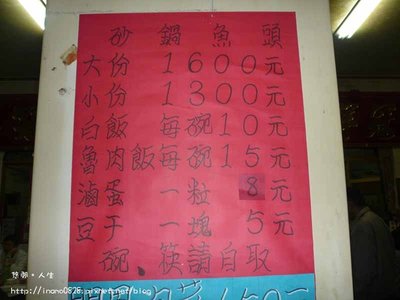 砂鍋魚頭
大份 1600元
小份 1300元
白飯 每碗10元
魯肉飯每碗15元
滷蛋 一粒 8元
豆干 一塊 5元
碗、筷請自取
悠朗。人生
http://inano0825.pixnet.net/blog